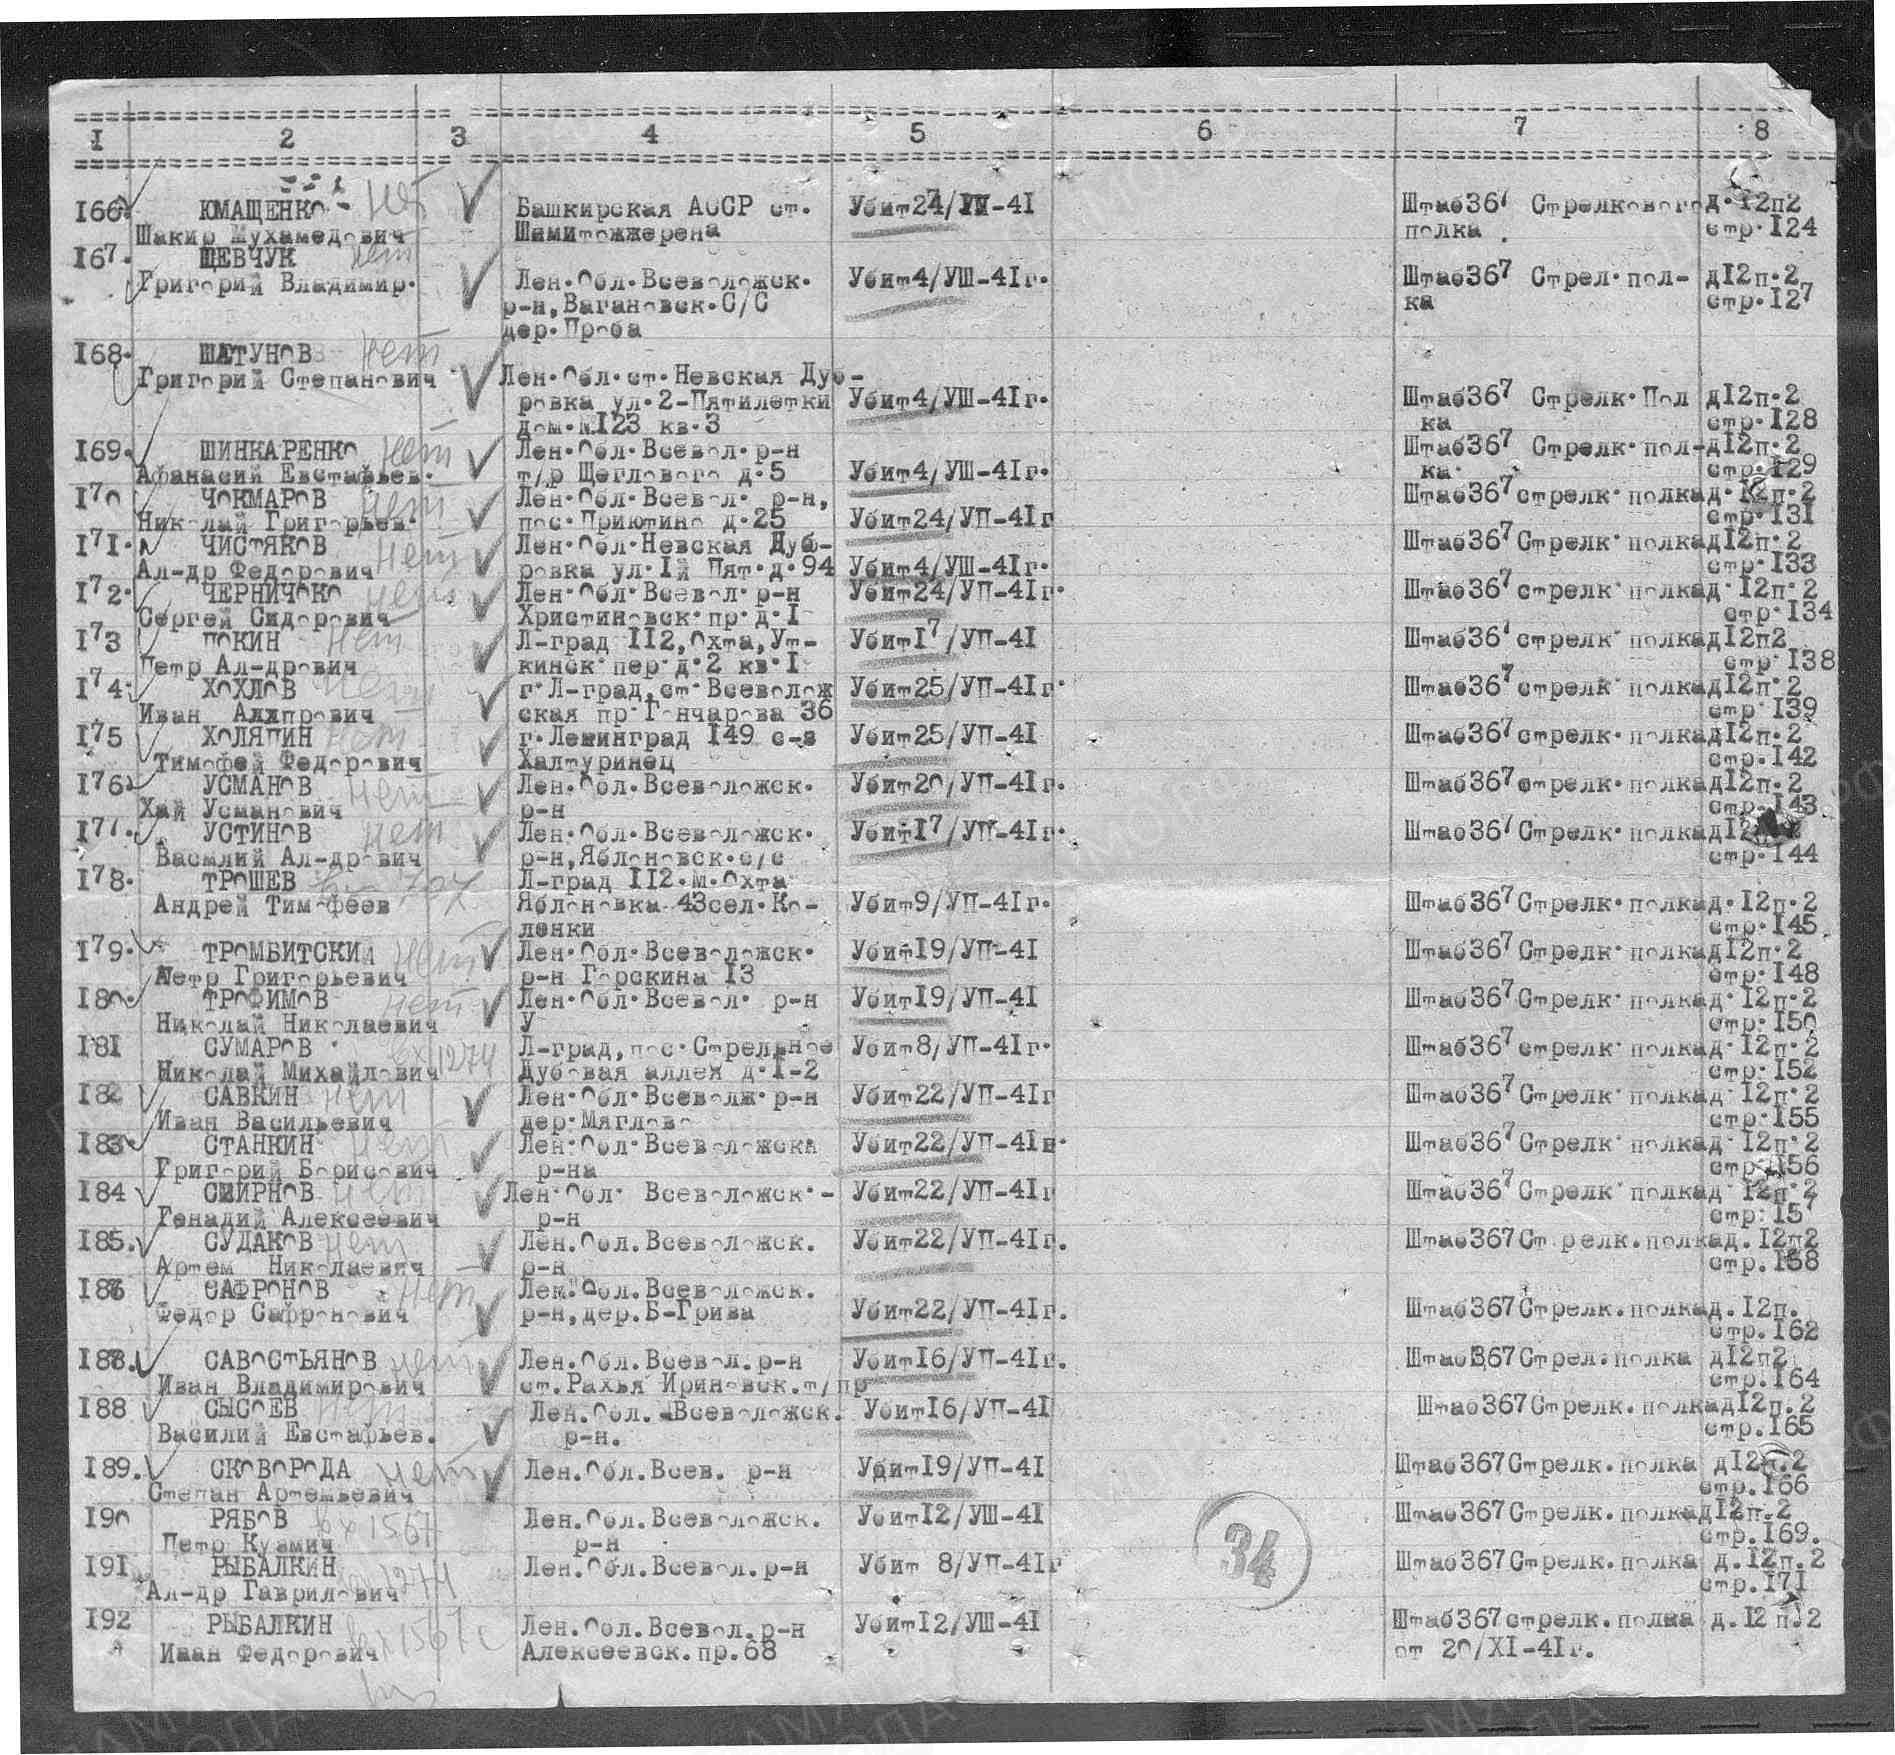 1 2 3 4 5 6 7 8
166. ЮМАЩЕНКО - нет Башкирская АССР ст. Убит 24/УП-41 Штаб 367 Стрелкового д.12п2
Шакир Мухамедович Шамитожжерена полка. стр.124
167. ШЕВЧУК нет
Григорий Владимир. Лен.Обл.Всеволожск. Убит 4/УШ-41г. Штаб 367 Стрел.пол- д12п.2
р-н, Вагановск.С/С ка стр.127
дер.Проба
168. ШАТУНОВ нет
Григорий Степанович Лен.Обл.ст.Невская Дуб-
ровка ул.2-Пятилетки Убит 4/УШ-41г. Штаб 367 Стрелк.Пол д12п.2
дом.№123 кв.3 ка стр.128
169. ШИНКАРЕНКО нет Лен.Обл.Всевол.р-н Штаб 367 Стрелк.пол- д12п.2
Афанасий Евстафьев. т/р Щеглового д.5 Убит 4/УШ-41г. ка. стр.129
170 ЧОКМАРОВ нет Лен.Обл.Всевол. р-н, Штаб 367 стрелк.полка д.12п.2
Николай Григорьев. пос.Приютино д.25 Убит 24/УП-41г стр.131
171. ЧИСТЯКОВ нет Лен.Обл.Невская Дуб- Штаб 367 Стрелк.полка д12п.2
Ал-др Федорович ровка ул.1й Пят.д.94 Убит 4/УШ-41г. стр.133
172. ЧЕРНИЧОКО нет Лен.Обл.Всевол.р-н Убит 24/УП-41г. Штаб 367 стрелк.полка д.12п.2
Сергей Сидорович Христиновск.пр.д.1 стр.134
173 ПОКИН нет Л-град 112, Охта, Ут- Убит 17/УП-41 Штаб 367 стрелк.полка д12п2
Петр Ал-дрович кинск.пер.д.2 кв.1 стр.138
174. ХОХЛОВ нет г.Л-град, ст.Всеволож Убит 25/УП-41г. Штаб 367 стрелк.полка д12п.2
Иван ская пр.Гончарова 36 стр.139
175 ХОЛЯПИН нет г.Ленинград 149 с-з Убит 25/УП-41 Штаб 367 стрелк.полка д12п.2
Тимофей Федорович Халтуринец стр.142
176. УСМАНОВ нет Лен.Обл.Всеволожск. Убит 20/УП-41г. Штаб 367 стрелк.полка д12п.2
Хай Усманович р-н стр.143
177. УСТИНОВ нет Лен.Обл.Всеволожск. Убит 17/УП-41г. Штаб 367 Стрелк.полка д12
Василий Ал-дрович р-н, Яблоновск.с/с стр.144
178. ТРОШЕВ Л-град 112.М.Охта
Андрей Тимофеев Яблоновка 43 сел.Ко- Убит 9/УП-41г. Штаб 367 Стрелк.полка д.12п.2
ленки стр.145
179. ТРОМБИТСКИЙ нет Лен.Обл.Всеволожск. Убит 19/УП-41 Штаб 367 Стрелк.полка д12п.2
Петр Григорьевич р-н Горскина 13 стр.148
180. ТРОФИМОВ нет Лен.Обл.Всевол. р-н Убит 19/УП-41 Штаб 367 Стрелк.полка д.12п.2
Николай Николаевич У стр.150
181 СУМАРОВ вх 11274 Л-град, пос.Стрельное Убит 8/УП-41г. Штаб 367 стрелк.полка д.12п.2
Николай Михайлович Дубовая аллея д.1-2 стр.152
182 САВКИН нет Лен.Обл.Всеволж.р-н Убит 22/УП-41г Штаб 367 Стрелк.полка д.12п.2
Иван Васильевич дер.Мяглово стр.155
183. СТАНКИН нет Лен.Обл.Всеволожска Убит 22/УП-41г. Штаб 367 Стрелк.полка д.12п.2
Григорий Борисович р-на стр.156
184 СМИРНОВ нет Лен.Обл. Всеволожск.- Убит 22/УП-41г Штаб 367 Стрелк.полка д.12п.2
Генадий Алексеевич р-н стр.157
185. СУДАКОВ нет Лен.Обл.Всеволожск. Убит 22/УП-41г. Штаб 367 Стрелк.полка д.12п2
Артем Николаевич р-н стр.158
186 САФРОНОВ нет Лен.Обл.Всеволожск.
Федор Сафронович р-н, дер.Б-Грива Убит 22/УП-41г. Штаб 367 Стрелк.полка д.12п.
стр.162
188. САВОСТЬЯНОВ нет Лен.Обл.Всевол.р-н Убит 16/УП-41г. Штаб 367 Стрел.полка д12п2
Иван Владимирович ст.Рахья Ириновск.т/пр стр.164
188 СЫСОЕВ нет Лен.Обл. Всеволожск. Убит 16/УП-41 Штаб 367 Стрелк.полка д12п.2
Василий Евстафьев. р-н. стр.165
189. СКОВОРОДА нет Лен.Обл.Всев. р-н Убит 19/УП-41 Штаб 367 Стрелк.полка д12п.2
Степан Артемьевич стр.166
190 РЯБОВ вх 1567 Лен.Обл.Всеволожск. Убит 12/УШ-41 Штаб 367 Стрелк.полка д12п.2
Петр Кузмич р-н стр.169.
191 РЫБАЛКИН Лен.Обл.Всевол.р-н Убит 8/УП-41г Штаб 367 Стрелк.полка д.12п.2
Ал-др Гаврилович 11274 стр.171
192 РЫБАЛКИН Лен.Обл.Всевол.р-н Убит 12/УШ-41 Штаб 367 стрелк.полка д.12 п.2
Иван Федорович вх 1567с Алексеевск.пр.68 от 20/XI-41г.
34